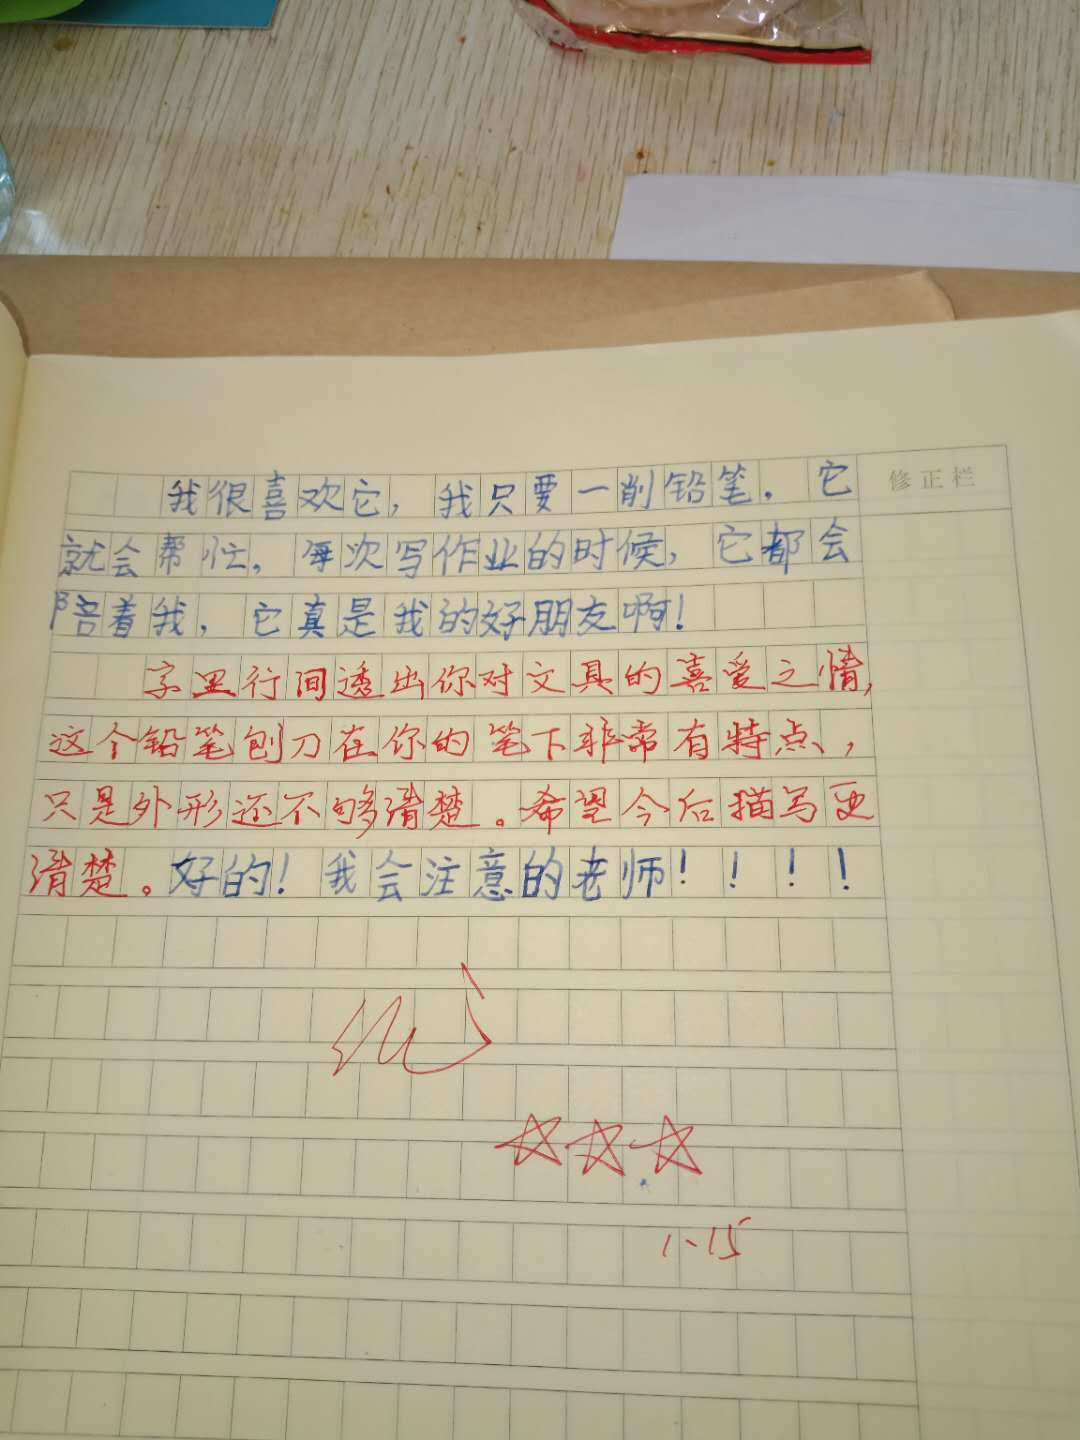 修正栏
我很喜欢它，我只要一削铅笔．它
就会帮忙，每次写作业的时候，它都会
陪着我，它真是我的好朋友啊！
字里行间透出你对文具的喜爱之情，
这个铅笔刨刀在你的笔下非常有特点，
只是外形还不够清楚。希望今后描写更
清楚。好的！我会注意的老师！！！！
1、15